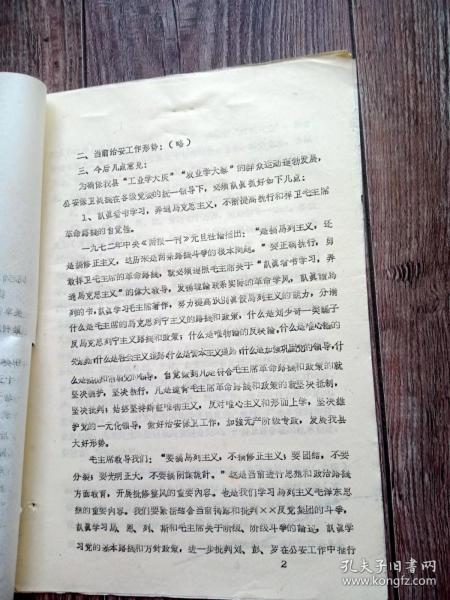 二、当前治安工作形势：（略）
三、今后几点意见：
为确保我县“工业学大庆”“农业学大寨”的群众运动蓬勃发展，
公安保卫机关在各级党委的统一领导下，必须认真抓好如下几点：
1、认真看书学习，弄通马克思主义，不断提高执行和捍卫毛主席
革命路线的自觉性。
一九七二年中央《两报一刊》元旦社论指出：“是搞马列主义，还
是搞修正主义，这历来是两条路线斗争的根本问题。”要正确执行，勇
敢捍卫毛主席的革命路线，就必须遵照毛主席关于“认真看书学习，弄
通马克思主义”的伟大教导，发扬理论联系实际的革命学风，认真读马
列的书，认真学习毛主席著作，努力提高识别真假马列主义的能力，分清
什么是毛主席的马克思列宁主义的路线和政策，什么是刘少奇一类骗子
反马克思列宁主义的路线和政策，什么是唯物论的反映论，什么是唯心论的
先验论，什么是社会主义道路，什么是资本主义道路，什么是加强巩固党的领导，什
么是削弱和
坚决拥护，坚决执行，凡是违背毛主席革命路线和政策的就坚决抵制，
坚决批判；始终坚持辩证唯物主义，反对唯心主义和形而上学，坚决维
护党的一元化领导，做好治安保卫工作，加强无产阶级专政，发展我县
大好形势。
毛主席教导我们：“要搞马列主义，不搞修正主义；要团结，不要
分裂；要光明正大，不要搞阴谋诡计。”这是当前进行思想和政治路线
方面教育，开展批修整风的重要内容。也是我们学习马列主义毛泽东思
想的重要内容。我们要紧密结合当前揭露和批判××反党集团的斗争，
认真学习马、恩、列、斯和毛主席关于阶级、阶级斗争的论述，认真学
习党的基本路线和方针政策，进一步批判刘、彭、罗在公安工作中推行
2
孔夫子旧书网
book.kongfz.com